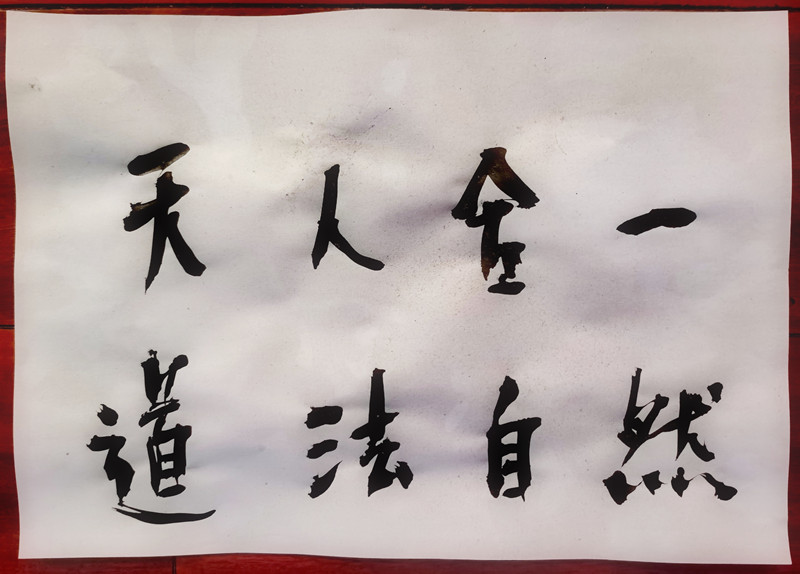 天人合一
道法自然